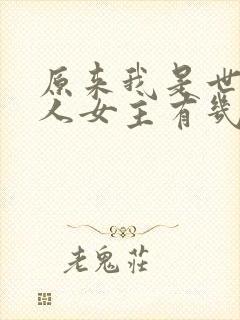 原来我是世
人女主有几
老鬼莊